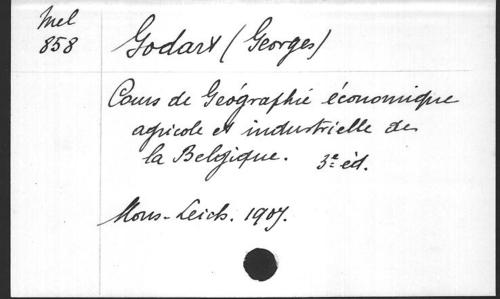 Mel
858
Godart (Georges)
Cours de Géographie économique
agricole et industrielle de
la Belgique. 3e éd.
Mons-Leich. 1907.